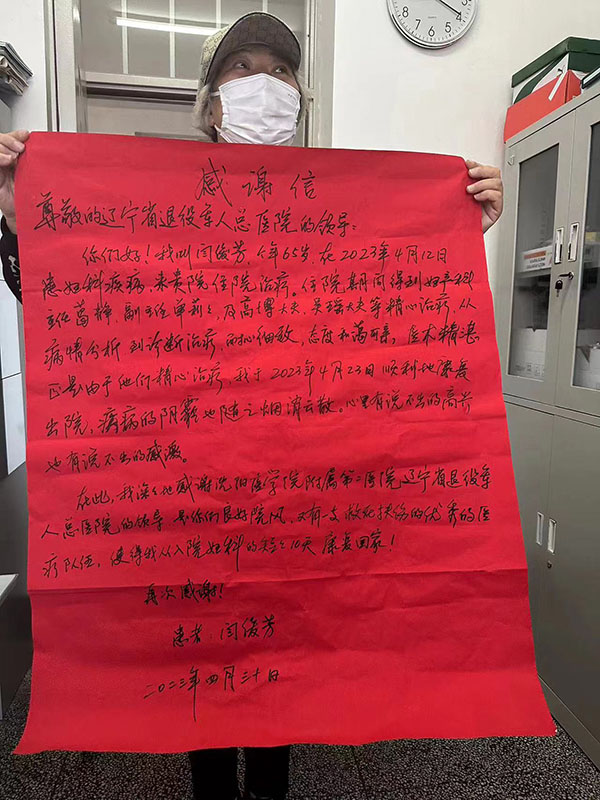 感谢信
尊敬的辽宁省退役军人总医院的领导:
你们好!我叫闫俊芳,今年65岁,在2023年4月12日
患妇科疾病,来贵院住院治疗。住院期间得到妇产科
主任葛静、副主任单莉莉及高博大夫、吴瑶大夫等精心治疗,从
病情分析到诊断治疗,耐心细致,态度和蔼可亲,医术精湛
正是由于他们精心治疗,我于2023年4月23日顺利地康复
出院,疾病的阴霾也随之烟消云散。心里有说不出的高兴
也有说不出的感激。
在此,我深深地感谢沈阳医学院附属第二医院辽宁省退役军
人总医院的领导是你们良好院风,又有一支救死扶伤的优秀的医
疗队伍,使得我从入院妇科的短短10天康复回家!
再次感谢!
患者:闫俊芳
二〇二三年四月三十日